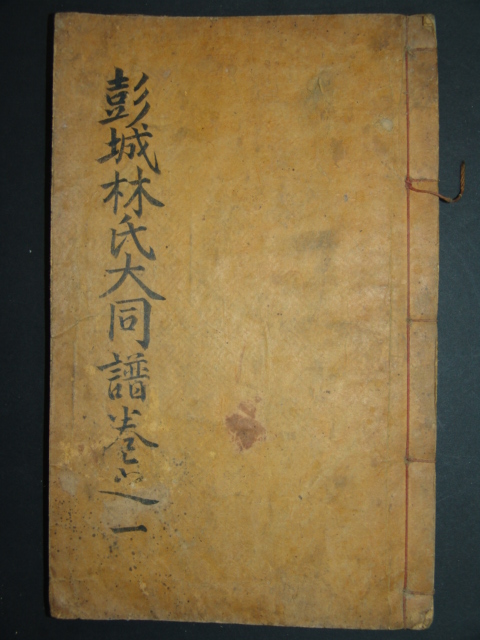 彭城林氏大同譜卷之一